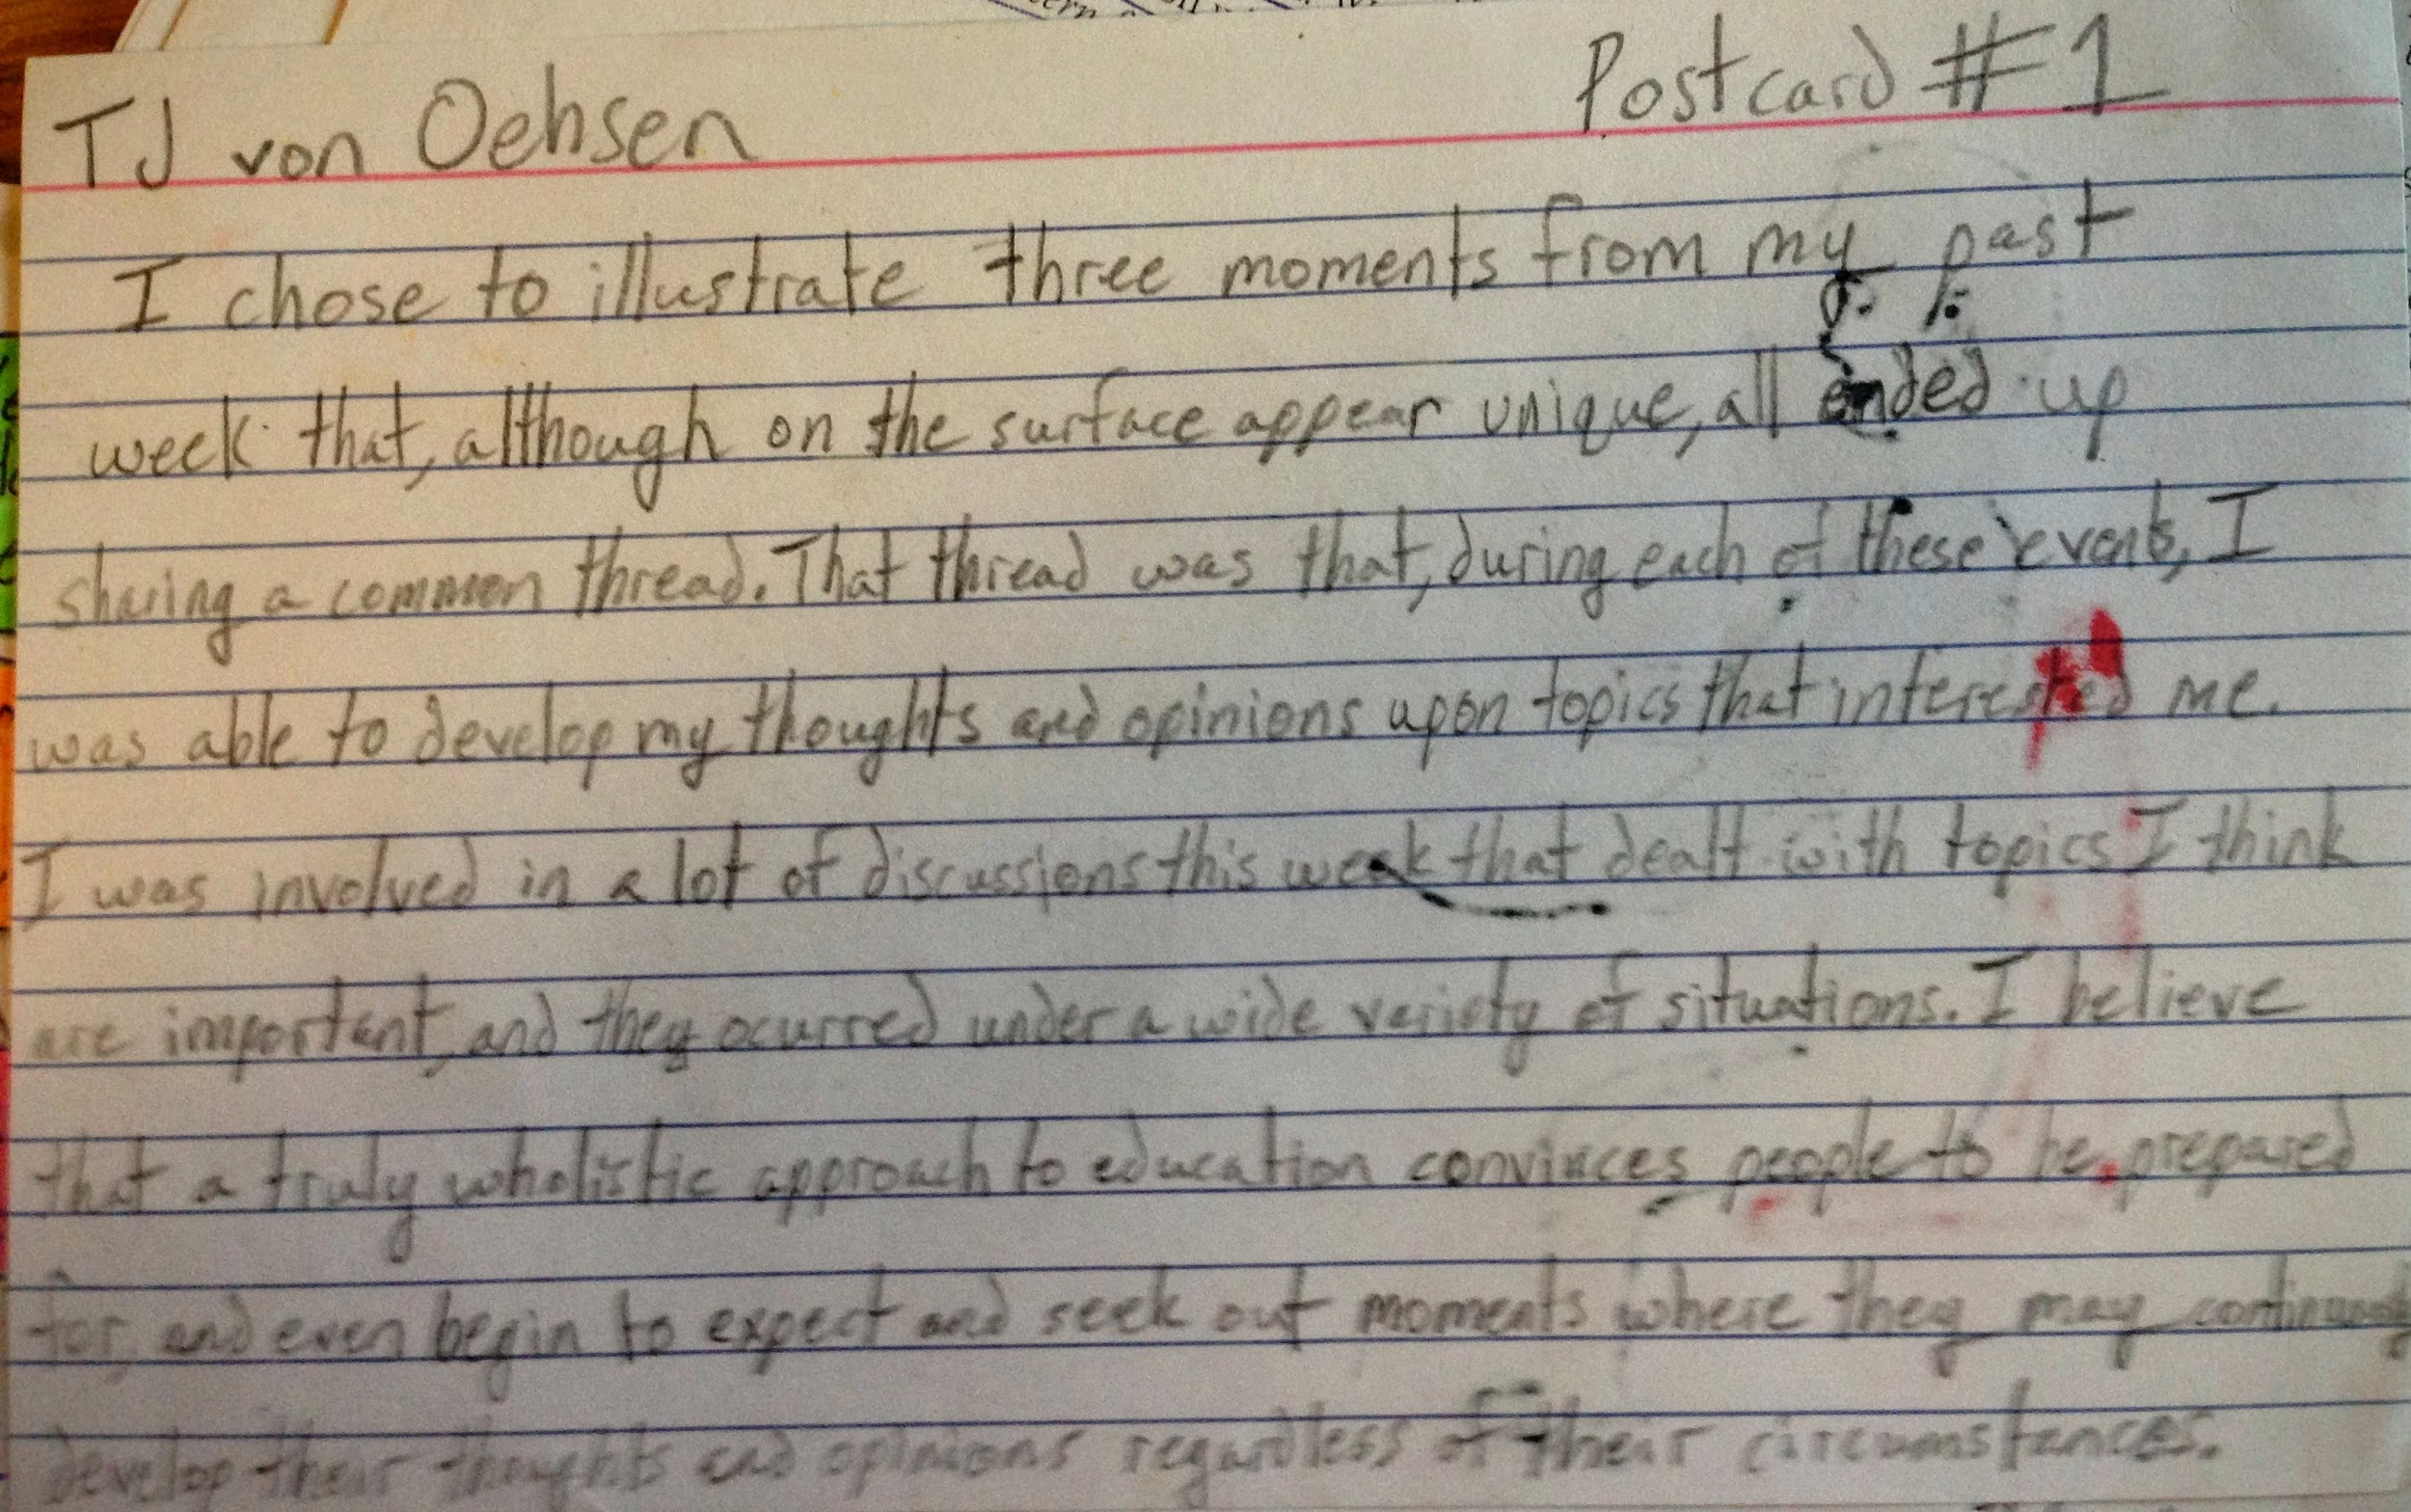 TJ von Oehsen Postcard #1
I chose to illustrate three moments from my past
week that, although on the surface appear unique, all ended up
sharing a common thread. That thread was that, during each of these events, I
was able to develop my thoughts and opinions upon topics that interested me.
I was involved in a lot of discussions this week that dealt with topics I think
are important, and they ocurred under a wide variety of situations. I believe
that a truly wholistic approach to education convinces people to be prepared
for, and even begin to expect and seek out moments where they may
develop their thoughts and opinions regardless of their circumstances.